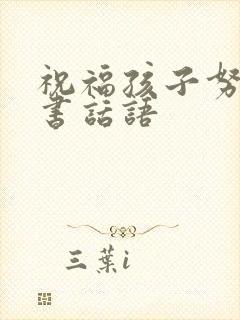 祝福孩子努
書話語
三葉i